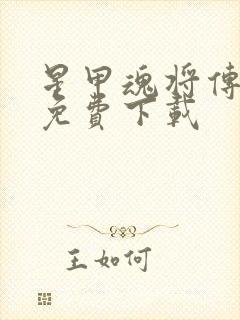 星甲魂将傳
免費下載
王如何